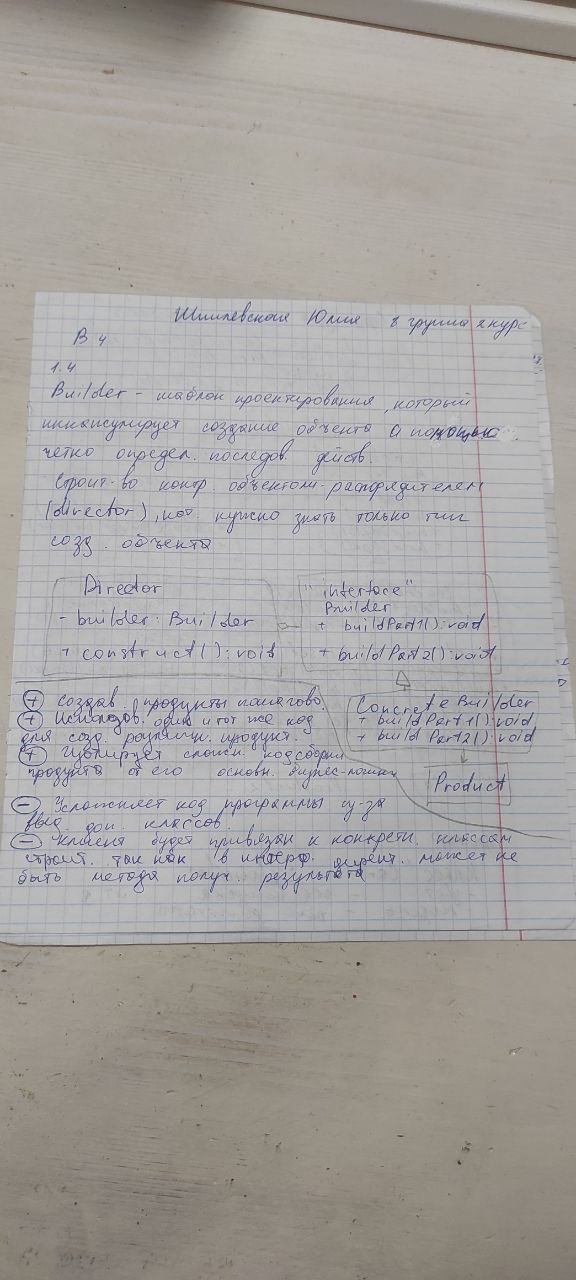 Юлия 8 группа 2 курс
В 4
1.4
Builder - шаблон проектирования, который
инкапсулирует создание объекта с помощью
четко определ. последов. действ.
Строит-во контр. объектом-распределителем
(director), кот. нужно знать только тип
созд. объекта
Director
- builder: Builder
+ construct(): void
"interface"
Builder
+ buildPart1(): void
+ buildPart2(): void
ConcreteBuilder
+ buildPart1(): void
+ buildPart2(): void
Product
+ создав. продукты пошагово.
+ Использов. один и тот же код
для созд. различн. продукт.
+ Изолирует сложн. код сборки
продукта от его основн. бизнес-логики
- Усложняет код программы из-за
введ. доп. классов.
- Клиент будет привязан к конкретн. классам
строит. так как в интерф. может не
быть метода получ. результата